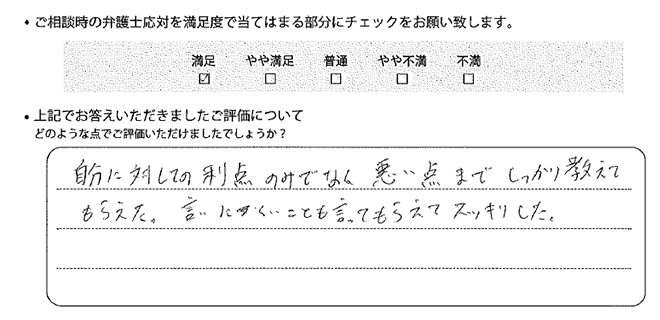 • ご相談時の弁護士応対を満足度で当てはまる部分にチェックをお願い致します。
満足 やや満足 普通 やや不満 不満
☑ ☐ ☐ ☐ ☐
• 上記でお答えいただきましたご評価について
どのような点でご評価いただけましたでしょうか？
自分に対しての利点のみでなく悪い点までしっかり教えて
もらえた。言いにくいことも言ってもらえてスッキリした。